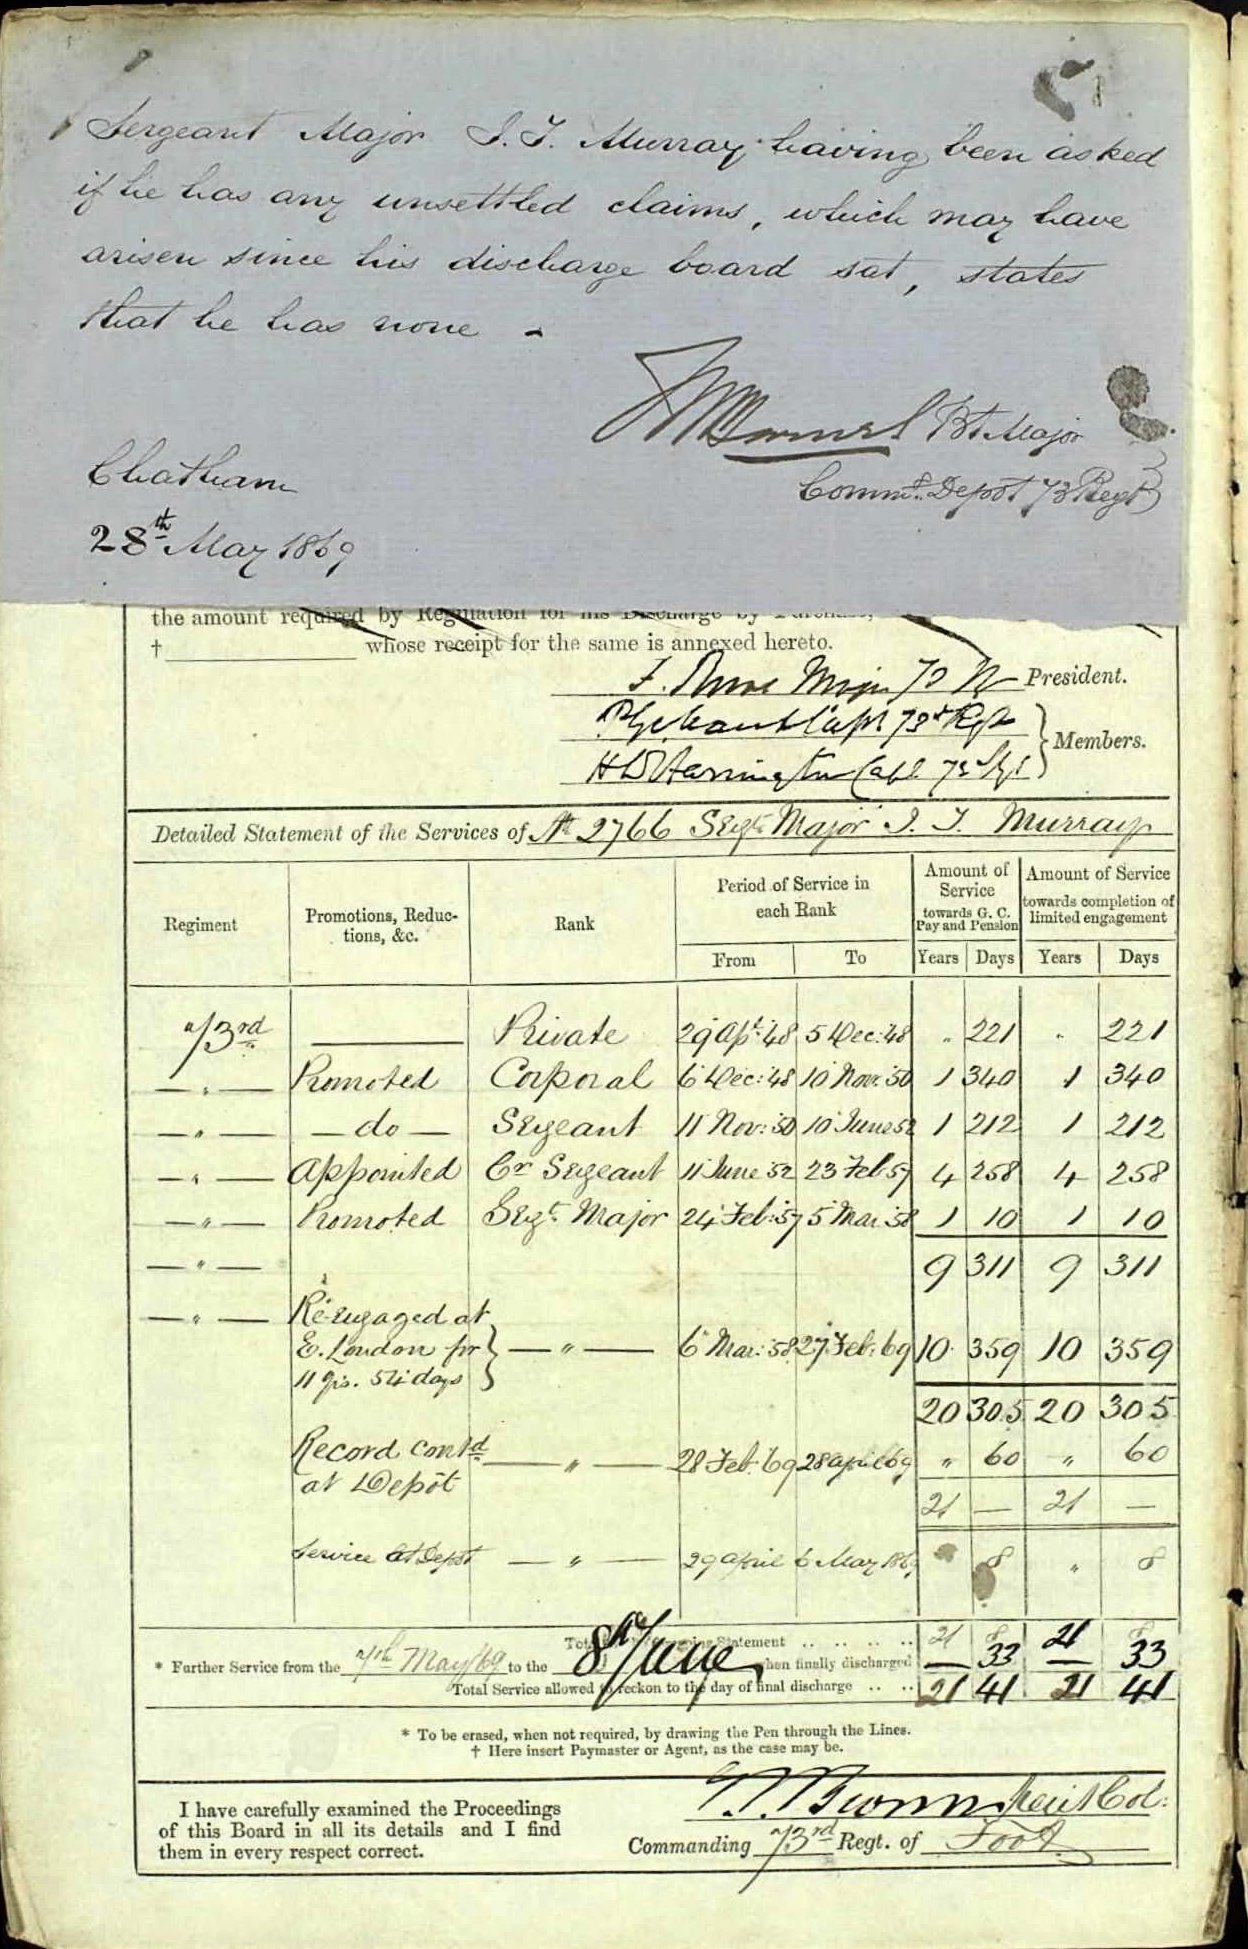 Sergeant Major I. T. Murray having been asked
if he has any unsettled claims, which may have
arisen since his discharge board sat, states
that he has none -
Bt. Major
Commg. Depot 73 Regt
Chatham
28th May 1869
the amount required by Regulation for his Discharge by Purchase,
† whose receipt for the same is annexed hereto.
Major 73 President.
Capt 73rd Regt
H D Harrington Capt 73rd Regt
Members.
Detailed Statement of the Services of No 2766 Sergt Major I. T. Murray
Regiment | Promotions, Reductions, &c. | Rank | Period of Service in each Rank | Amount of Service towards G. C. Pay and Pension | Amount of Service towards completion of limited engagement
From | To | Years | Days | Years | Days
73rd | — | Private | 29 Apl. '48 | 5 Dec: '48 | " | 221 | " | 221
— " — | Promoted | Corporal | 6 Dec: '48 | 10 Nov. '50 | 1 | 340 | 1 | 340
— " — | — do — | Sergeant | 11 Nov: '50 | 10 June 52 | 1 | 212 | 1 | 212
— " — | Appointed | Cr Sergeant | 11 June '52 | 23 Feb 57 | 4 | 258 | 4 | 258
— " — | Promoted | Sergt. Major | 24 Feb: '57 | 5 Mar: '58 | 1 | 10 | 1 | 10
— " — | 9 | 311 | 9 | 311
— " — | Re-engaged at
E. London for | — " — | 6 Mar: '58 | 27 Feb: 69 | 10 | 359 | 10 | 359
11 yrs. 54 days
20 | 305 | 20 | 305
Record contd | — " — | 28 Feb. 69 | 28 April 69 | " | 60 | " | 60
at Depôt
21 | — | 21 | —
Service at Depot | — " — | 29 April | 6 May 1869 | 8 | " | 8
Statement .. .. .. .. 21 8 21 8
* Further Service from the 7th May/69 to the 8th June when finally discharged — 33 — 33
Total Service allowed to reckon to the day of final discharge .. .. 21 41 21 41
* To be erased, when not required, by drawing the Pen through the Lines.
† Here insert Paymaster or Agent, as the case may be.
I have carefully examined the Proceedings
of this Board in all its details and I find
them in every respect correct.
Lieut Col:
Commanding 73rd Regt. of Foot